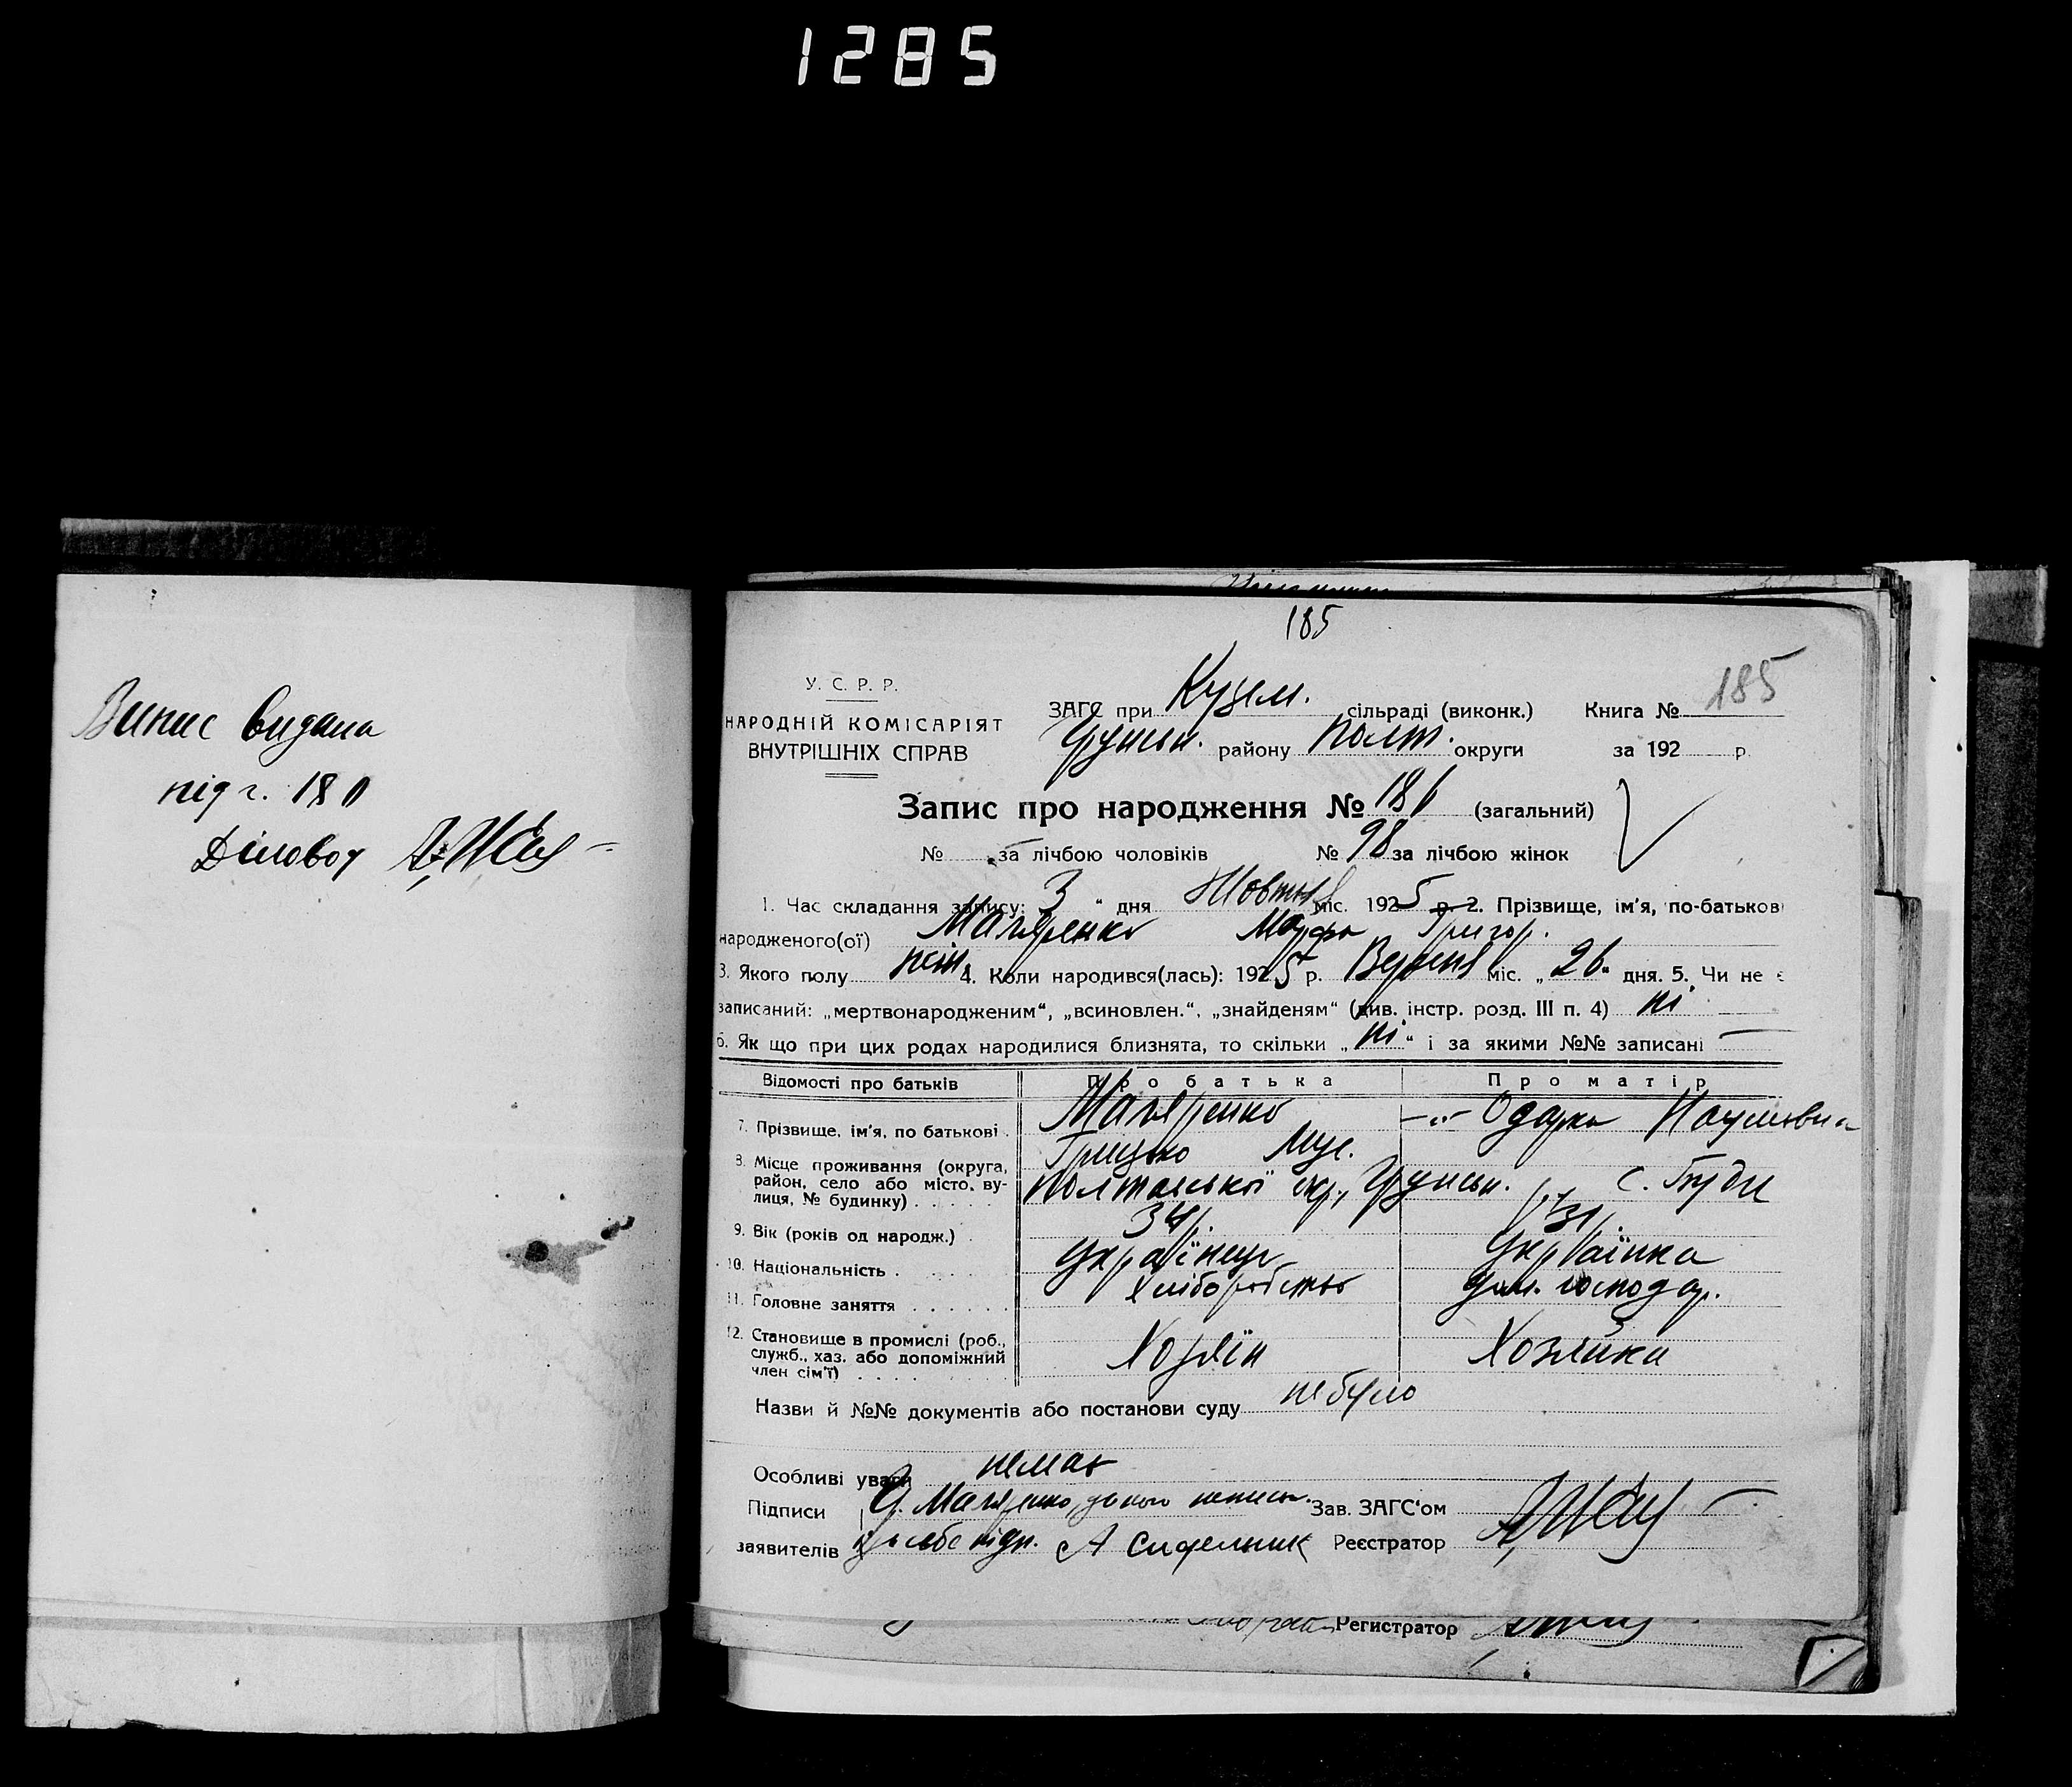 1285
Випис видана
під ч. 180
Діловод
185
У. С. Р. Р.
НАРОДНІЙ КОМІСАРІЯТ
ВНУТРІШНІХ СПРАВ
ЗАГС при Кузем. сільраді (виконк.)
Грунськ. району Полт. округи
Книга № 185
за 192 р.
Запис про народження № 186 (загальний)
№ за лічбою чоловіків № 98 за лічбою жінок
1. Час складання запису: 3 " дня Жовтня міс. 1925 р. 2. Прізвище, ім'я, по-батькові
народженого(ої) Магяренко Марфа Григор.
3. Якого полу жін. 4. Коли народився(лась): 1925 р. Вересня міс. „ 26 " дня. 5. Чи не є
записаний: „мертвонародженим", „всиновлен.", „знайденям" (див. інстр. розд. III п. 4) ні
6. Як що при цих родах народилися близнята, то скільки „ ні " і за якими №№ записані —
Відомості про батьків Про батька Про матір
7. Прізвище, ім'я, по батькові . Магяренко Грицько Мус. —"— Одарка Наумовна
8. Місце проживання (округа,
район, село або місто, ву-
лиця, № будинку) . . . . . Полтавської окр., Грунськ. с. Буди
9. Вік (років од народж.) . 34 31
10. Національність . Українець Українка
11. Головне заняття . . . . . . Хліборобство дом. господар.
12. Становище в промислі (роб.,
служб., хаз. або допоміжний
член сім'ї) . . . . Хозяїн Хозяйка
Назви й №№ документів або постанови суду не було
Особливі уваги немає
Підписи Магяренко, Зав. ЗАГС'ом
заявителів підп. А Сидельник Реєстратор
Регистратор